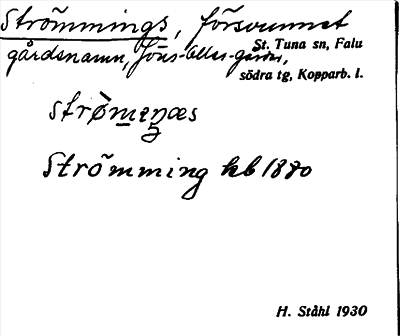 Strömmings, försvunnet
gårdsnamn, Jöns-Olles-
St. Tuna sn, Falu
södra tg, Kopparb. l.
Strömming kb 1880
H. Ståhl 1930